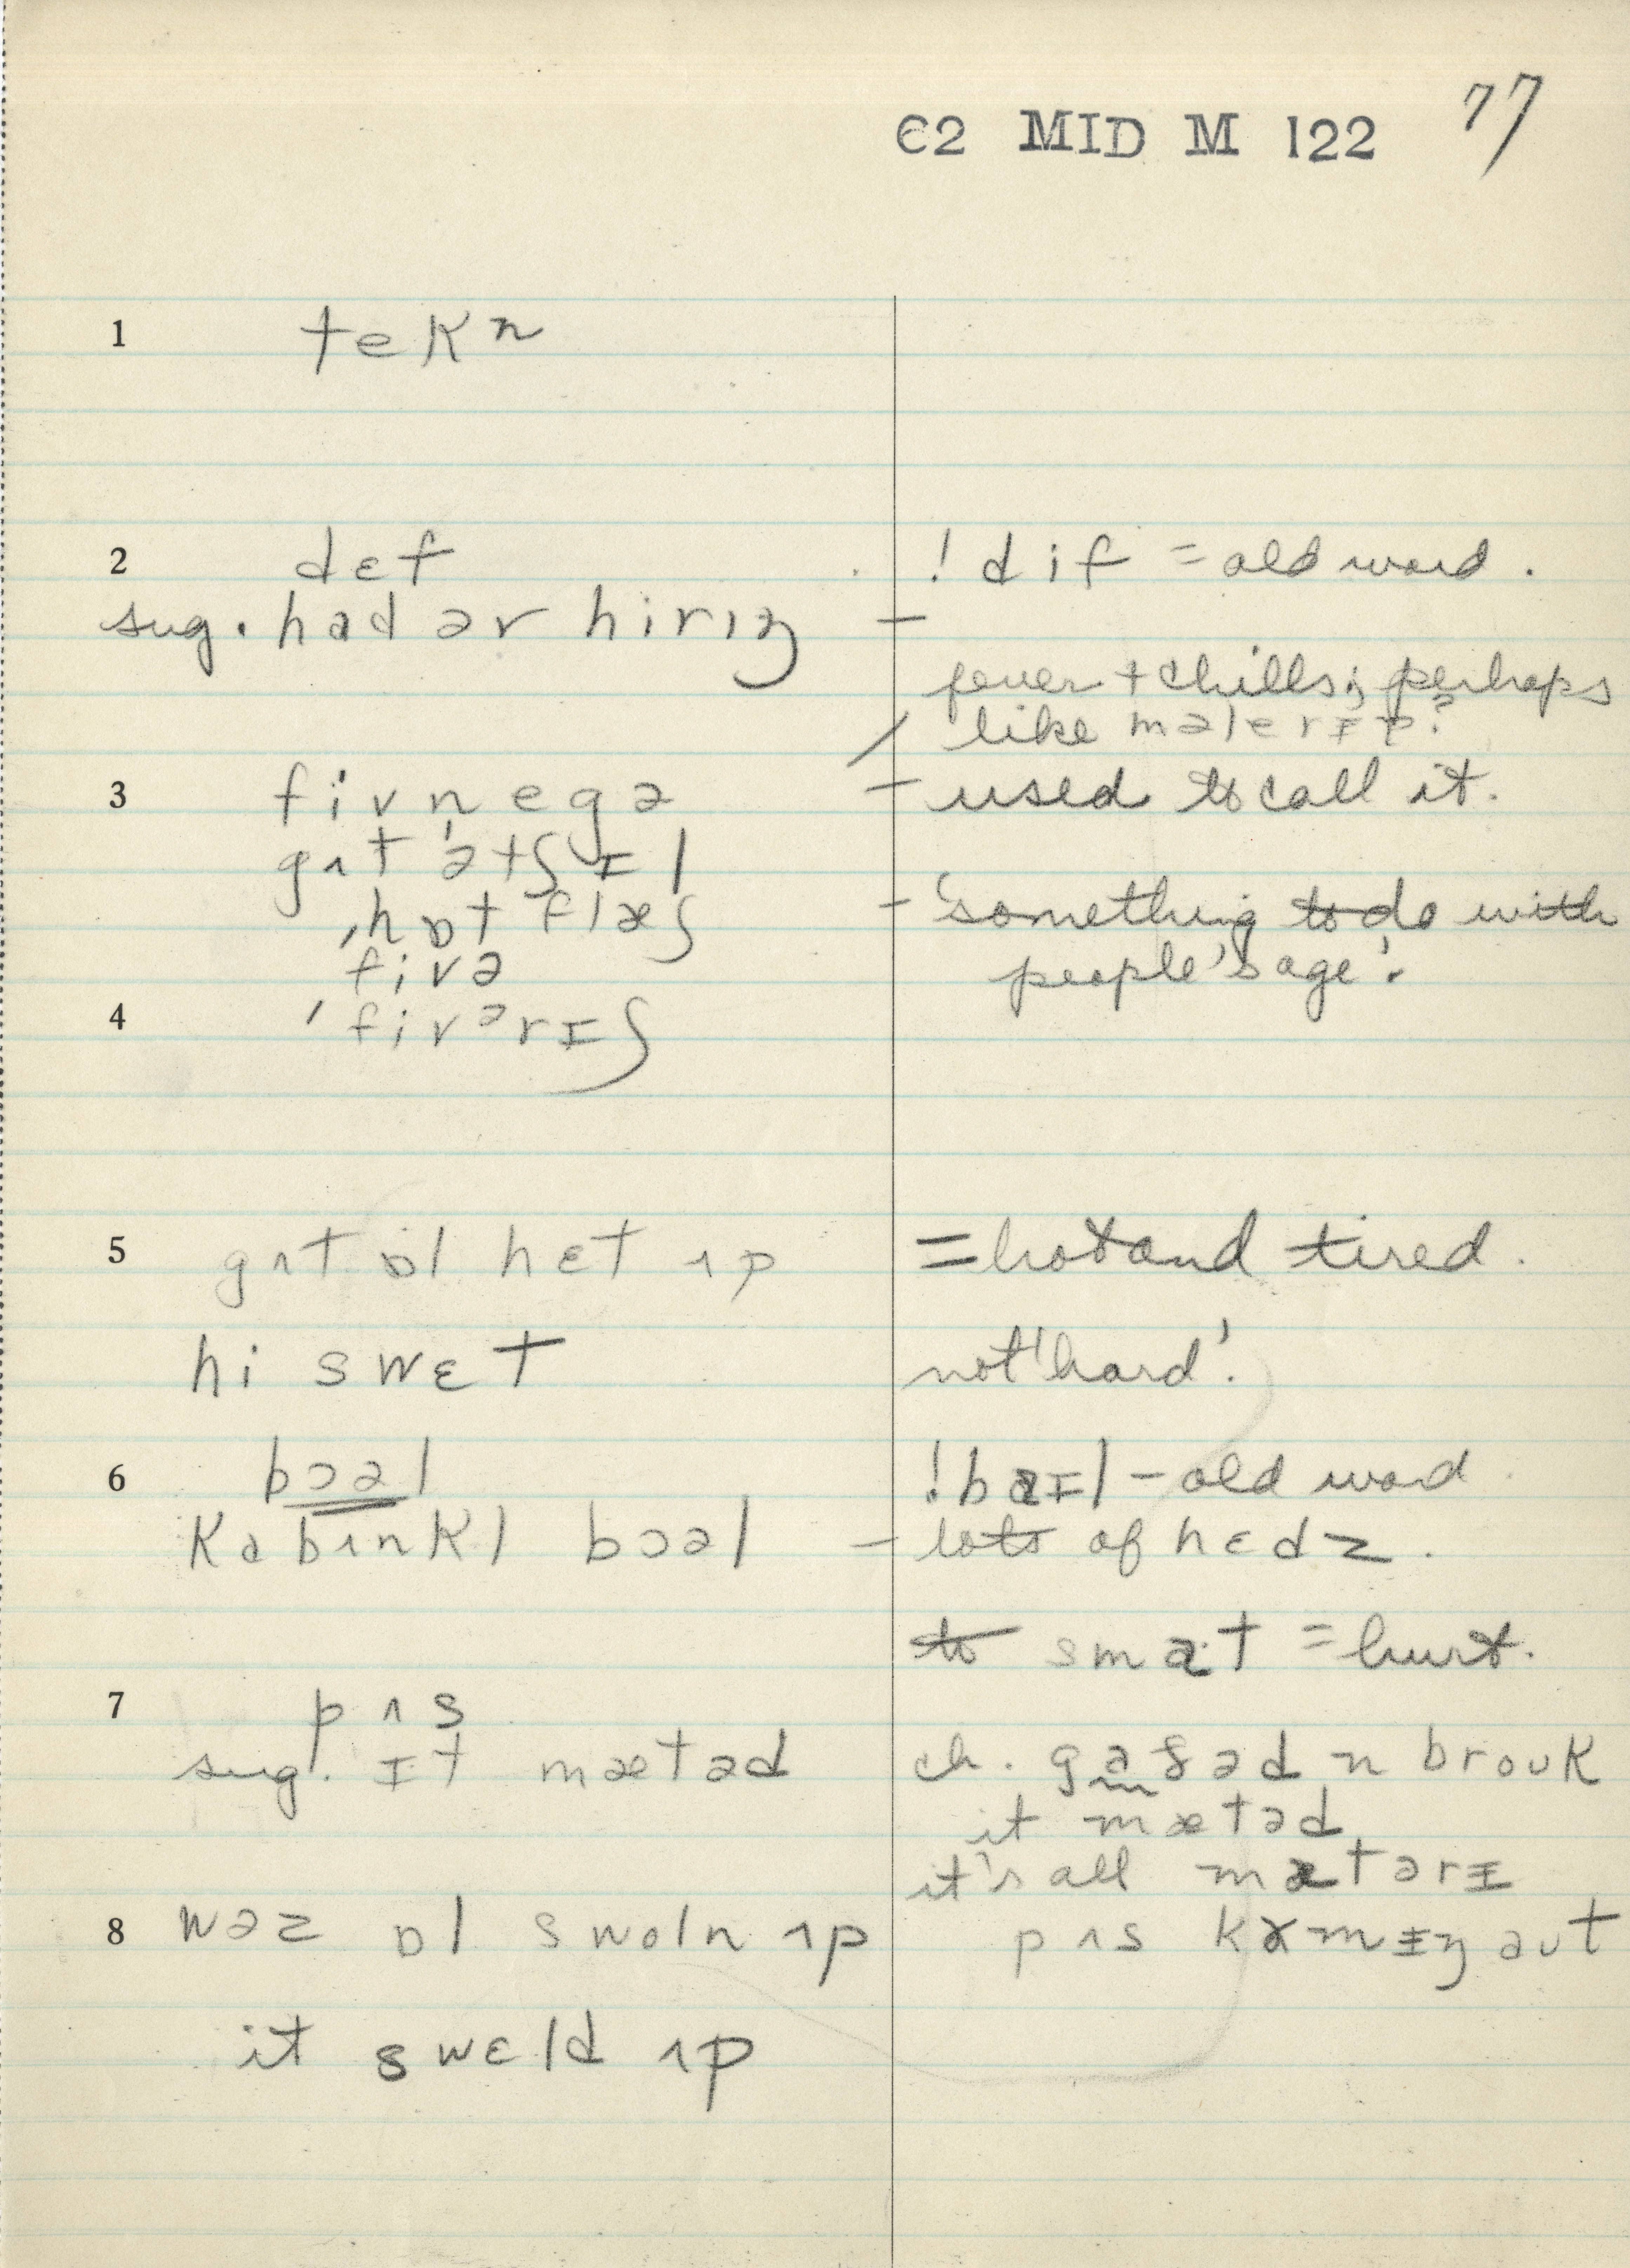 C2 MID M 122 77
1 tekn
2 dɛf ! dif = old word.
sug. had ər hirɪŋ –
fever + chills; perhaps
like məlerɪə?
3 fivnegə – used to call it.
gʌt ə tʃɪl
ˌhɒt flæʃ – 'something to do with
fivə people's age'.
4 ˈfivərɪʃ
5 gʌt ɒl hɛt ʌp = hot and tired.
hi swɛt not 'hard'.
6 bɔəl ! baɪl – old word
kabʌnkl bɔəl – lots of hɛdz.
to smat = hurt.
7 pʌs
sug. ɪt mætəd ch. gaðəd n brouk
it mætəd
it's all mætərɪ
8 wəz ɒl swoln ʌp pʌs kʌmɪŋ aut
it swɛld ʌp